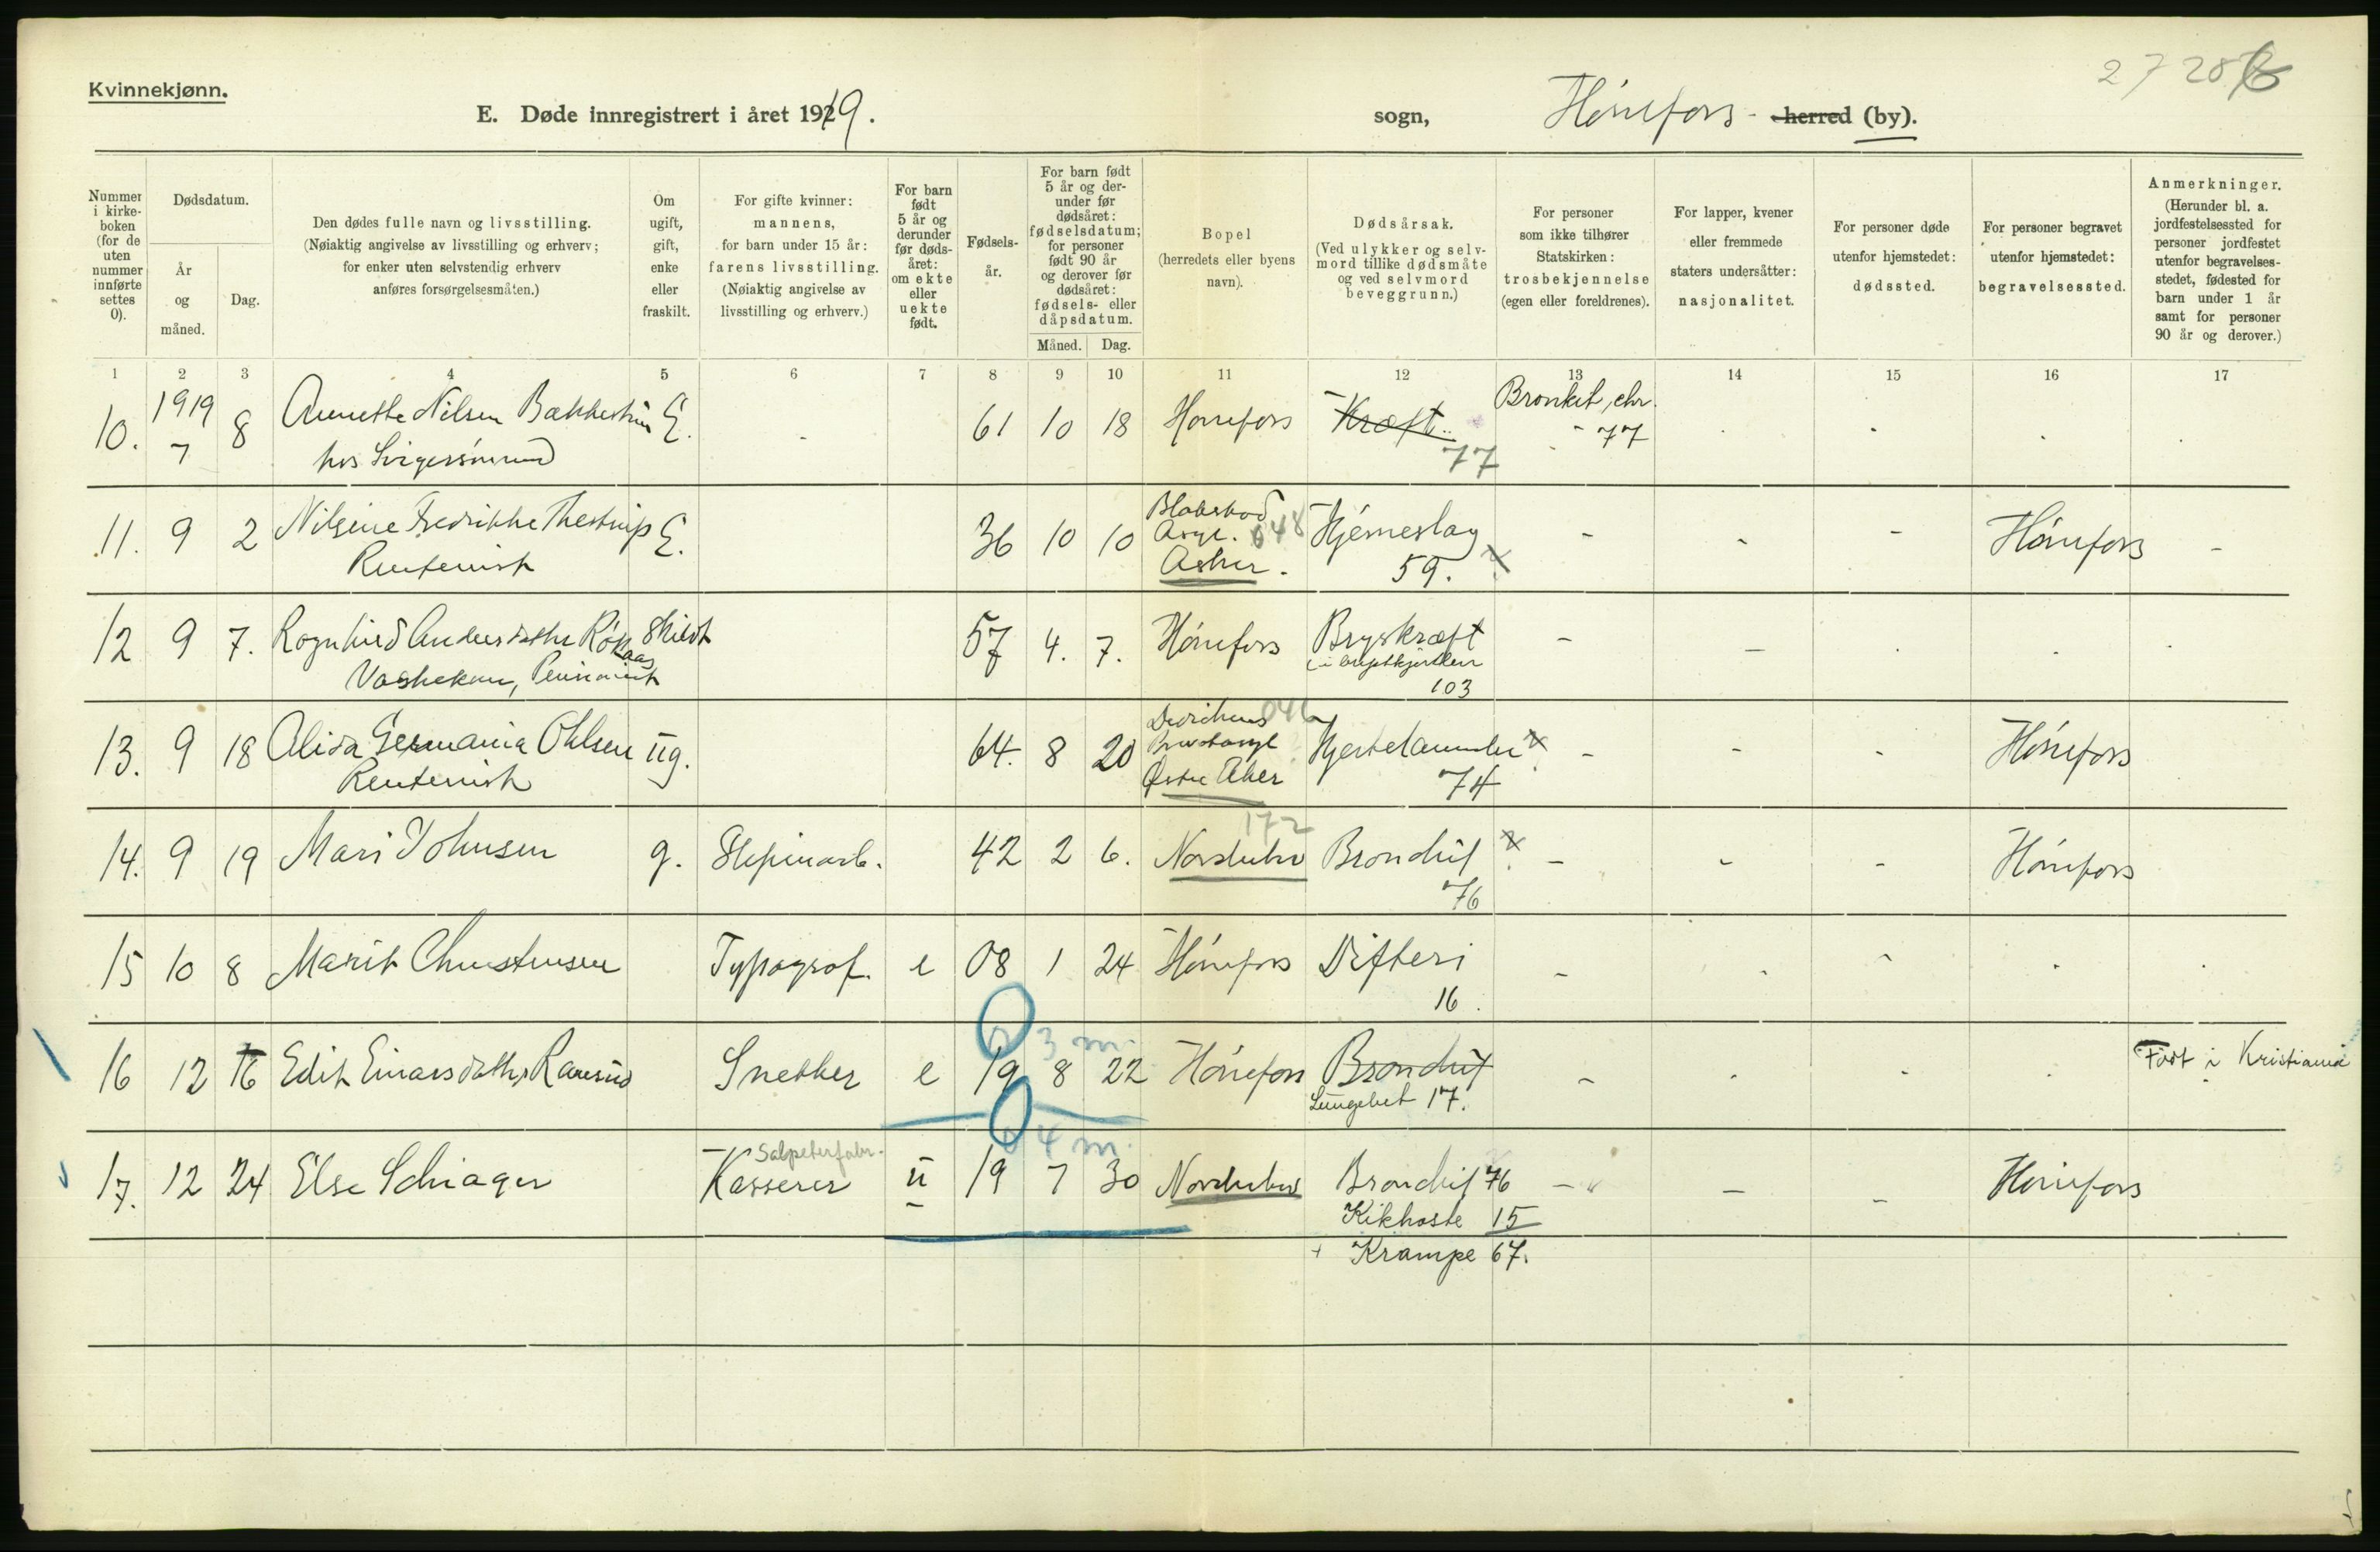 Kvinnekjønn.
E. Døde innregistrert i året 1919.
sogn, Hönefoss herred (by).
2728
Nummer i kirkeboken (for de uten nummer innførte settes 0).
Dødsdatum.
År og måned.
Dag.
Den dødes fulle navn og livsstilling. (Nøiaktig angivelse av livsstilling og erhverv; for enker uten selvstendig erhverv anføres forsørgelsesmåten.)
Om ugift, gift, enke eller fraskilt.
For gifte kvinner: mannens, for barn under 15 år: farens livsstilling. (Nøiaktig angivelse av livsstilling og erhverv.)
For barn født 5 år og derunder før dødsåret: om ekte eller uekte født.
Fødselsår.
For barn født 5 år og derunder før dødsåret: fødselsdatum; for personer født 90 år og derover før dødsåret: fødsels- eller dåpsdatum.
Måned. Dag.
Bopel (herredets eller byens navn).
Dødsårsak. (Ved ulykker og selvmord tillike dødsmåte og ved selvmord beveggrunn.)
For personer som ikke tilhører Statskirken: trosbekjennelse (egen eller foreldrenes).
For lapper, kvener eller fremmede staters undersåtter: nasjonalitet.
For personer døde utenfor hjemstedet: dødssted.
For personer begravet utenfor hjemstedet: begravelsessted.
Anmerkninger. (Herunder bl. a. jordfestelsessted for personer jordfestet utenfor begravelsesstedet, fødested for barn under 1 år samt for personer 90 år og derover.)
1 2 3 4 5 6 7 8 9 10 11 12 13 14 15 16 17
10. 1919 7 8 Annette Nilsen E. - 61 10 18 Hönefoss Kræft 77 Bronkit, chr. 77
hos Svigersön
11. 9 2 Nilsine Fredrikke Thestrup E. 36 10 10 Blakstad Asyl. 048 Asker. Hjerneslag 59. - - - Hönefoss -
Rentenist
12 9 7. Ragnhild Andersdatter Skilt 57 4. 7. Hönefoss Brystkræft 103 -
Vaskekone, Pensionist
13. 9 18 Alida Germania Ohlsen ug. 64. 8 20 Østre Aker 74 - - - Hönefoss
Rentenist
14. 9 19 Mari Johnsen g. Sliperiarb. 42 2 6. 172 Norderhov Bronchit 76 - - - Hönefoss
15 10 8 Marit Christensen Typograf. e 08 1 24 Hönefoss Difteri 16
16 12 16 Edit Einarsdatter Ramsrud Snekker e 19 8 22 3 m. Hönefoss Bronchit Född i Kristiania
Lungebet 17.
17. 12 24 Else Schiager Salpeterfabr. Kasserer u 19 7 30 4 m. Norderhov Bronchit 76 - - - Hönefoss
Kikhoste 15
+ Krampe 67.